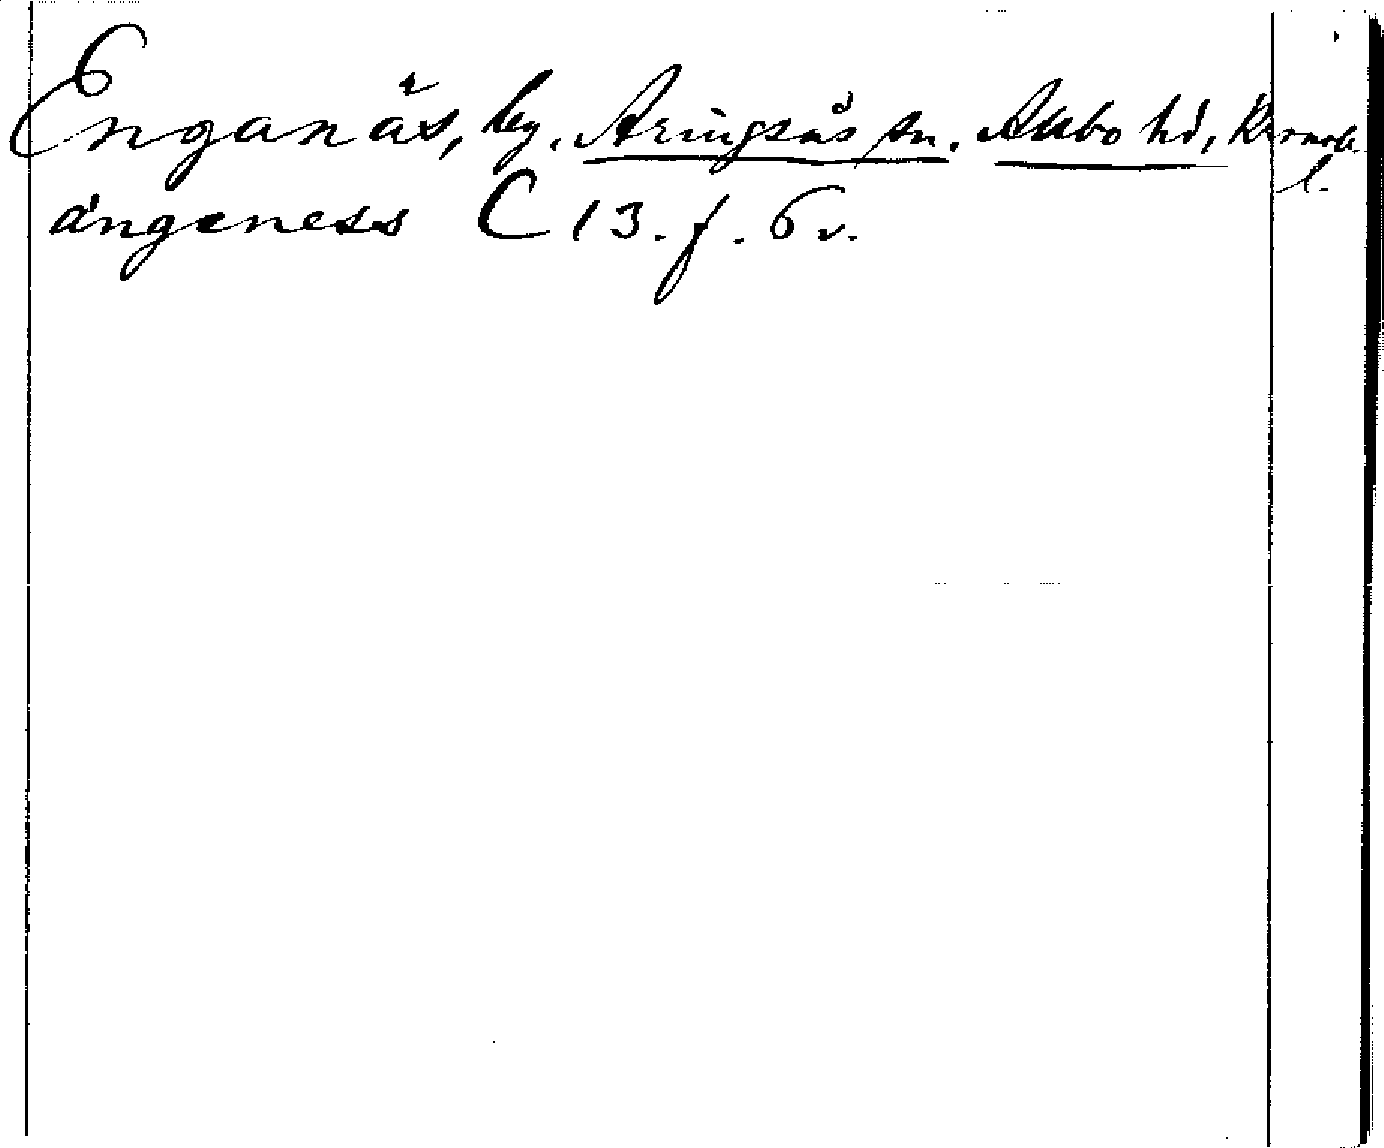 Enganäs, by. Aringsås sn. Allbo hd, Kronob.
l.
ängeness C 13. f. 6 v.